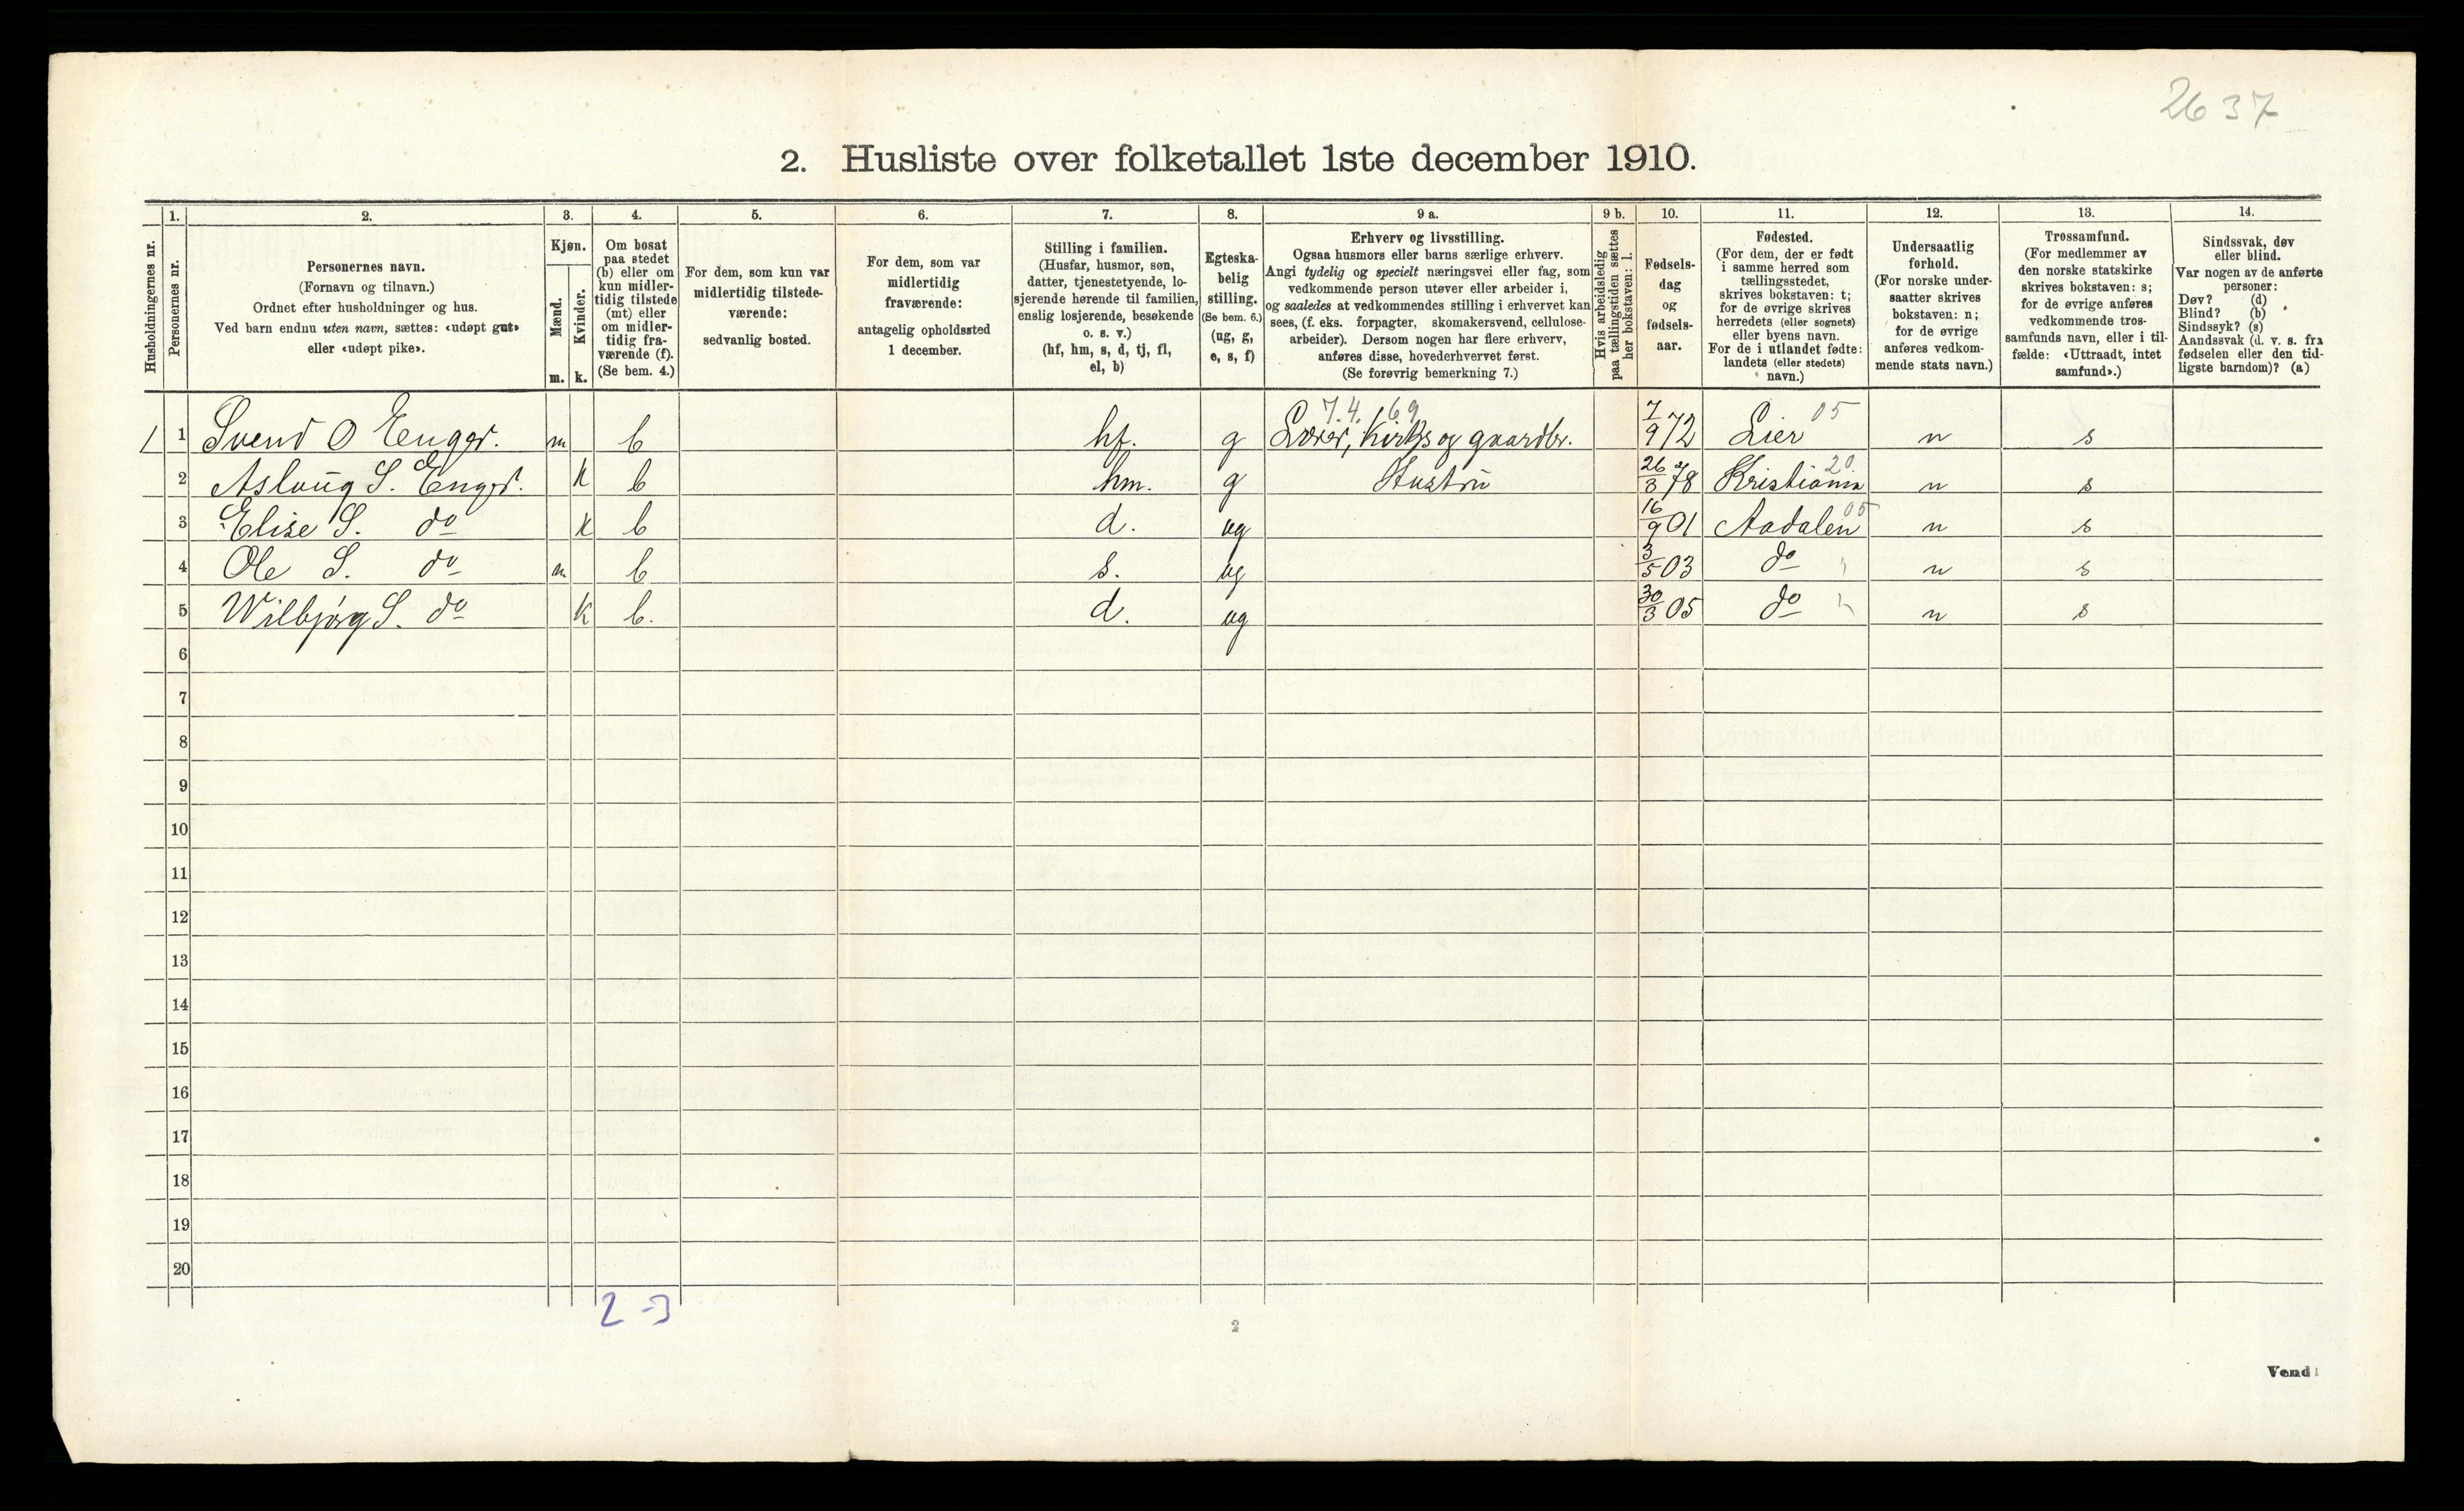 2637
2. Husliste over folketallet 1ste december 1910.
1. 2. 3. 4. 5. 6. 7. 8. 9 a. 9 b. 10. 11. 12. 13. 14.
Husholdningernes nr.
Personernes nr.
Personernes navn.
(Fornavn og tilnavn.)
Ordnet efter husholdninger og hus.
Ved barn endnu uten navn, sættes: «udøpt gut»
eller «udøpt pike».
Kjøn.
Mænd.
Kvinder.
m. k.
Om bosat
paa stedet
(b) eller om
kun midler-
tidig tilstede
(mt) eller
om midler-
tidig fra-
værende (f).
(Se bem. 4.)
For dem, som kun var
midlertidig tilstede-
værende:
sedvanlig bosted.
For dem, som var
midlertidig
fraværende:
antagelig opholdssted
1 december.
Stilling i familien.
(Husfar, husmor, søn,
datter, tjenestetyende, lo-
sjerende hørende til familien,
enslig losjerende, besøkende
o. s. v.)
(hf, hm, s, d, tj, fl,
el, b)
Egteska-
belig
stilling.
(Se bem. 6.)
(ug, g,
e, s, f)
Erhverv og livsstilling.
Ogsaa husmors eller barns særlige erhverv.
Angi tydelig og specielt næringsvei eller fag, som
vedkommende person utøver eller arbeider i,
og saaledes at vedkommendes stilling i erhvervet kan
sees, (f. eks. forpagter, skomakersvend, cellulose-
arbeider). Dersom nogen har flere erhverv,
anføres disse, hovederhvervet først.
(Se forøvrig bemerkning 7.)
Hvis arbeidsledig
paa tællingstiden sættes
her bokstaven: l.
Fødsels-
dag
og
fødsels-
aar.
Fødested.
(For dem, der er født
i samme herred som
tællingsstedet,
skrives bokstaven: t;
for de øvrige skrives
herredets (eller sognets)
eller byens navn.
For de i utlandet fødte:
landets (eller stedets)
navn.)
Undersaatlig
forhold.
(For norske under-
saatter skrives
bokstaven: n;
for de øvrige
anføres vedkom-
mende stats navn.)
Trossamfund.
(For medlemmer av
den norske statskirke
skrives bokstaven: s;
for de øvrige anføres
vedkommende tros-
samfunds navn, eller i til-
fælde: «Uttraadt, intet
samfund».)
Sindssvak, døv
eller blind.
Var nogen av de anførte
personer:
Døv? (d)
Blind? (b)
Sindssyk? (s)
Aandssvak (d. v. s. fra
fødselen eller den tid-
ligste barndom)? (a)
7.4. 69 05
1 1 Svend O Enger. m b hf. g Lærer, Kirks og gaardbr. 7/9 72 Lier n s
2 Aslaug S. Enger. k b hm. g Hustru 26/3 78 Kristiania 20. n s
3 Elise S. do k b d. ug 16/9 01 Aadalen 05 n s
4 Ole S. do m b s. ug 3/5 03 do n s
5 Wilbjørg S. do k b. d. ug 30/3 05 do n s
6
7
8
9
10
11
12
13
14
15
16
17
18
19
20
2 - 3
2
Vend!